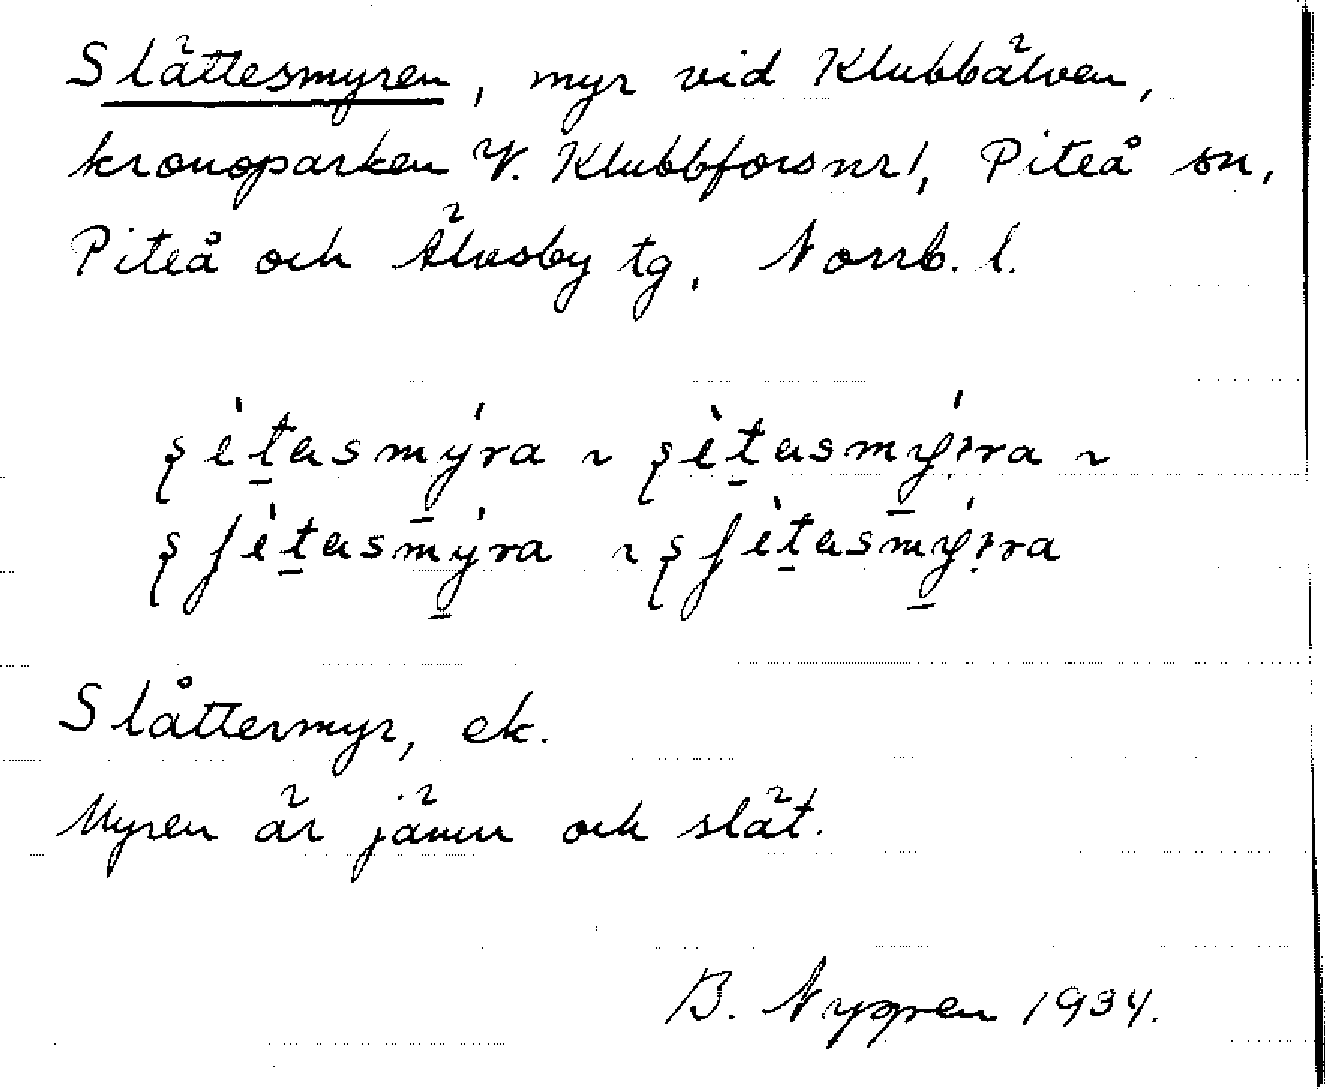 Slättesmyren, myr vid Klubbälven,
kronoparken V. Klubbfors nr 1, Piteå sn,
Piteå och Älvsby tg, Norrb. l.
Slåttermyr, ek.
Myren är jämn och slät.
B. Nygren 1934.